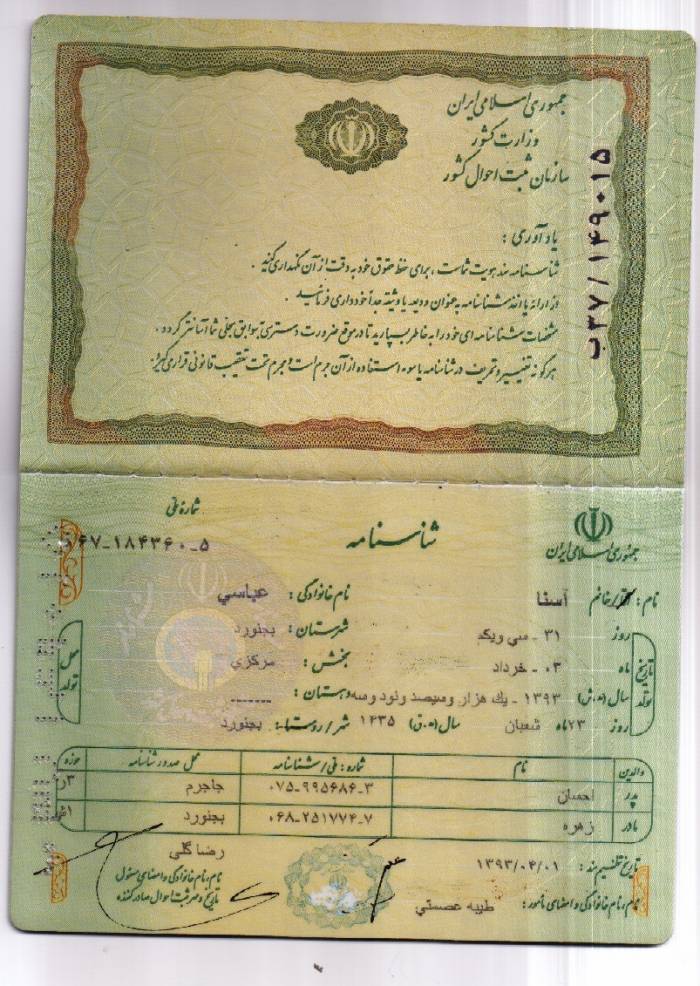 جمهوری اسلامی ایران
وزارت کشور
سازمان ثبت احوال کشور
ب۳۷/۱۴۹۰۱۵
یادآوری :
شناسنامه سند هویت شماست ، برای حفظ حقوق خود به دقت از آن نگهداری کنید .
از ارائه یا اخذ شناسنامه به عنوان ودیعه یا وثیقه جداً خودداری فرمائید .
مشخصات شناسنامه ای خود را به خاطر بسپارید تا در موقع ضرورت دسترسی به سوابق سجلی شما آسانتر گردد .
هرگونه تغییر و تحریف در شناسنامه یا سوء استفاده از آن جرم است و مجرم تحت تعقیب قانونی قرار می گیرد.
جمهوری اسلامی ایران
شناسنامه
شماره ملی
۰۶۷-۱۸۴۳۶۰-۵
نام : آقا/خانم آسنا نام خانوادگی : عباسی
تاریخ تولد
روز ۳۱ - سی ویکم شهرستان : بجنورد
ماه ۰۳ - خرداد بخش : مرکزی
سال (ه.ش) ۱۳۹۳ - یك هزار وسیصد ونود وسه دهستان : ------
روز ۲۳ ماه شعبان سال (ه.ق) ۱۴۳۵ شهر/روستا : بجنورد
محل تولد
والدین نام شماره : ملی/شناسنامه محل صدور شناسنامه حوزه
پدر احسان ۰۷۵-۹۹۵۶۸۶-۳ جاجرم
مادر زهره ۰۶۸-۲۵۱۷۷۴-۷ بجنورد
تاریخ تنظیم سند : ۱۳۹۳/۰۴/۰۱
نام ، نام خانوادگی و امضای مأمور : طیبه عصمتی
رضا گلی
نام ، نام خانوادگی و امضای مسئول
تاریخ و مهر ثبت احوال صادرکننده